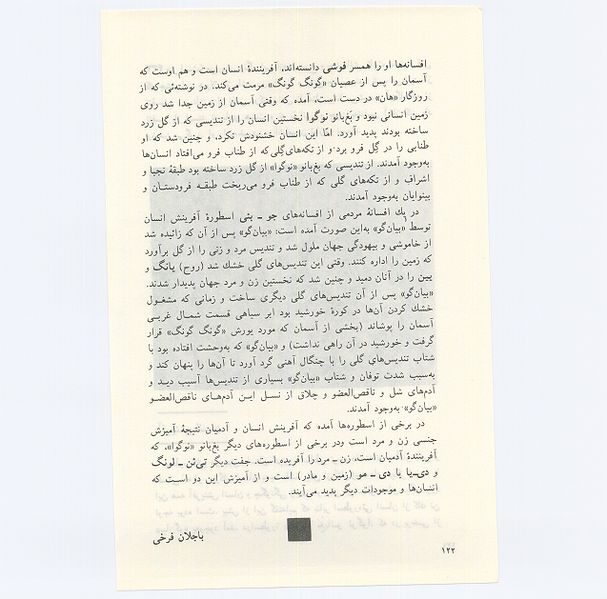 افسانه‌ها او را همسر فوشی دانسته‌اند. آفرینندهٔ انسان است و هم اوست که
آسمان را پس از عصیان «گونگ گونگ» مرمت می‌کند. در نوشته‌ئی که از
روزگار «هان» در دست است، آمده که وقتی آسمان از زمین جدا شد روی
زمین انسانی نبود و بغ‌بانو نوگوا نخستین انسان را از تندیسی که از گل زرد
ساخته بودند پدید آورد. امّا این انسان خشنودش نکرد، و چنین شد که او
طنابی را در گِل فرو برد و از تکه‌های گِلی که از طناب فرو می‌افتاد انسان‌ها
به‌وجود آمدند. از تندیسی که بغ‌بانو «نوگوا» از گل زرد ساخته بود طبقهٔ نجبا و
اشراف و از تکه‌های گلی که از طناب فرو می‌ریخت طبقه فرودستان و
بینوایان به‌وجود آمدند.
در یك افسانهٔ مردمی از افسانه‌های جو ـ یئی اسطورهٔ آفرینش انسان
توسط «بیان‌گو» به‌این صورت آمده است: «بیان‌گو» پس از آن که زائیده شد
از خاموشی و بیهودگی جهان ملول شد و تندیس مرد و زنی را از گل برآورد
که زمین را اداره کنند. وقتی این تندیس‌های گلی خشك شد (روح) یانگ و
یین را در آنان دمید و چنین شد که نخستین زن و مرد جهان پدیدار شدند.
«بیان‌گو» پس از آن تندیس‌های گلی دیگری ساخت و زمانی که مشغول
خشك کردن آن‌ها در کورهٔ خورشید بود ابر سیاهی قسمت شمال غربی
آسمان را پوشاند (بخشی از آسمان که مورد یورش «گونگ گونگ» قرار
گرفت و خورشید در آن راهی نداشت) و «بیان‌گو» که به‌وحشت افتاده بود با
شتاب تندیس‌های گلی را با چنگال آهنی گرد آورد تا آن‌ها را پنهان کند و
به‌سبب شدت توفان و شتاب «بیان‌گو» بسیاری از تندیس‌ها آسیب دید و
آدم‌های شل و ناقص‌العضو و چلاق از نسل این آدم‌های ناقص‌العضو
«بیان‌گو» به‌وجود آمدند.
در برخی از اسطوره‌ها آمده که آفرینش انسان و آدمیان نتیجهٔ آمیزش
جنسی زن و مرد است ودر برخی از اسطوره‌های دیگر بغ‌بانو «نوگوا»، که
آفرینندهٔ آدمیان است، زن ـ مرد را آفریده است. جفت دیگر تی‌ئن ـ لونگ
و دی‌ـ یا یا دی ـ مو (زمین و مادر) است و از آمیزش این دو است که
انسان‌ها و موجودات دیگر پدید می‌آیند.
باجلان فرخی
۱۲۲